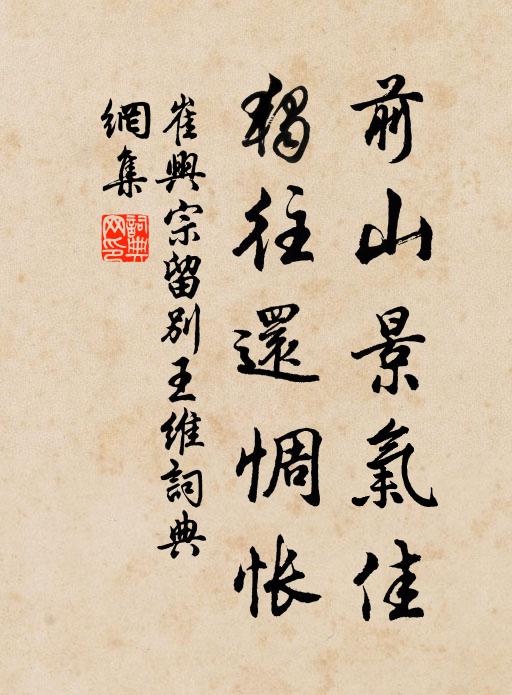 前山景氣佳
獨往還惆悵
崔興宗留別王維詞典
網集
詞典
网印